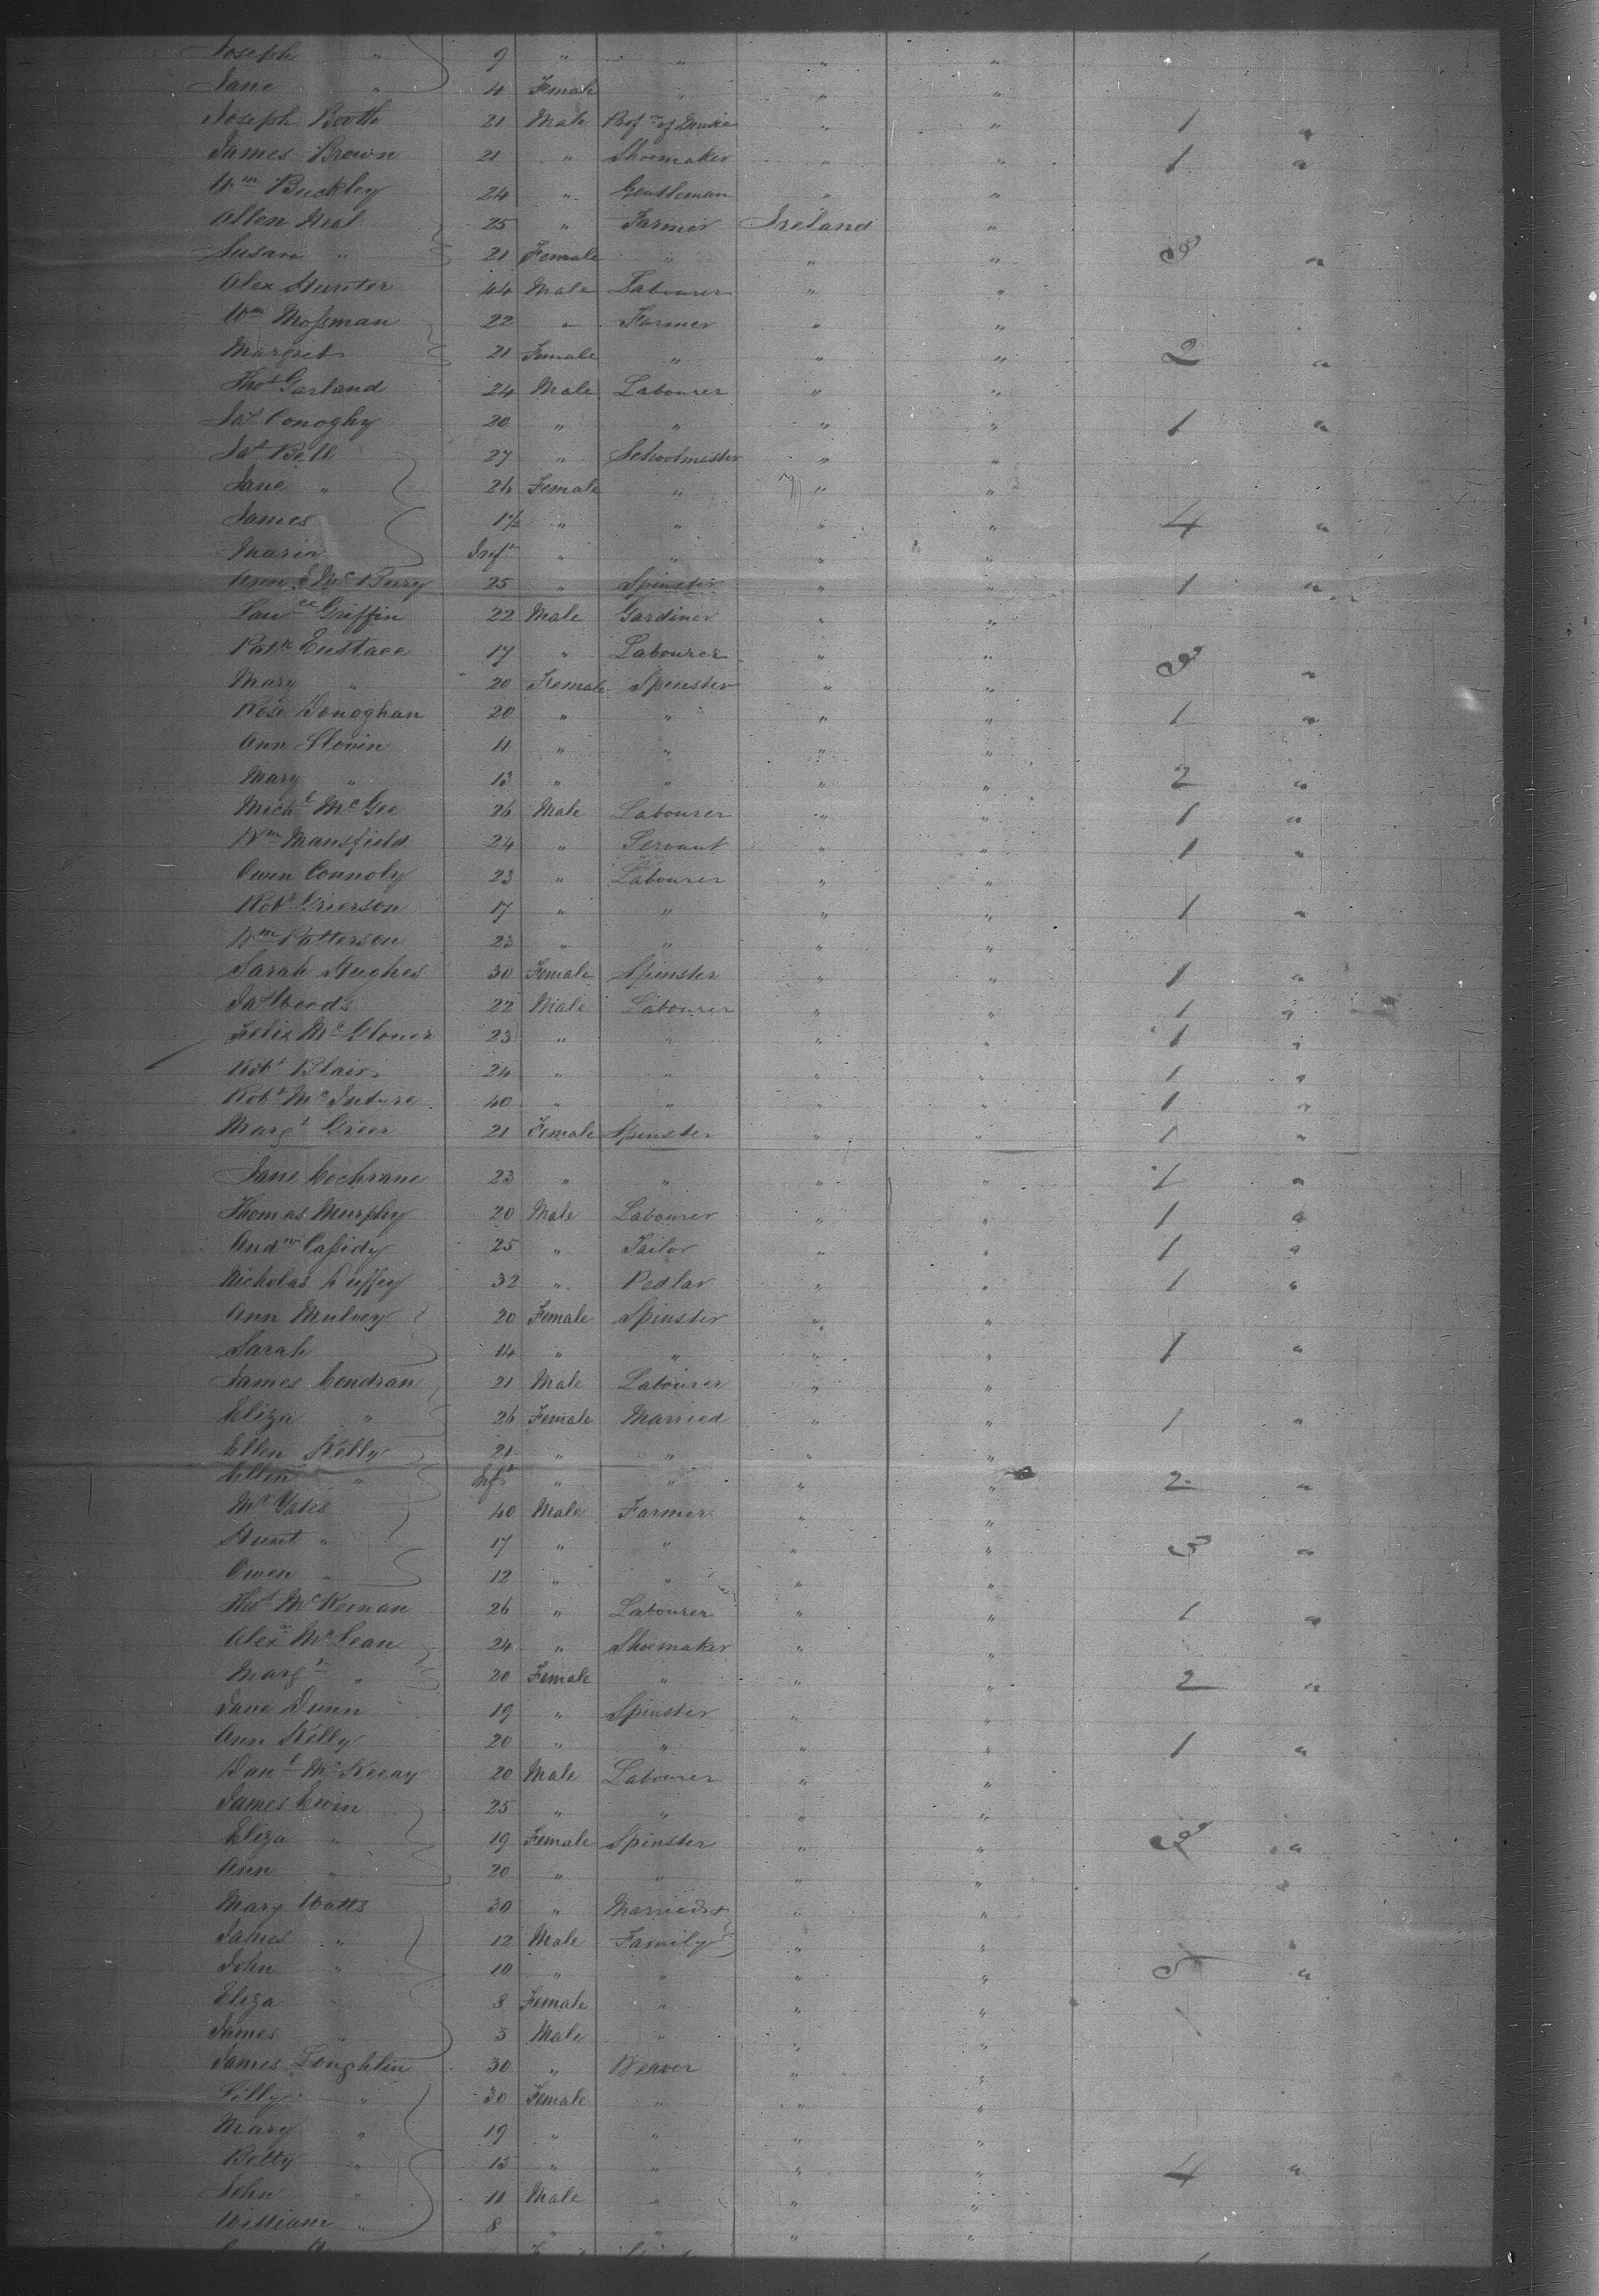 Joseph " 9 " " " "
Jane " 4 Female " " "
Joseph Booth 21 Male Prof of Music " " 1 "
James Brown 21 " Shoemaker " " 1 "
Wm Buckley 24 " Gentleman " "
Allen Neal 25 " Farmer Ireland "
Susan " 21 Female " " " 3 "
Alex Hunter 44 Male Labourer " "
Wm Moſsman 22 " Farmer " "
Margret 21 Female " " " 2 "
Thos Garland 24 Male Labourer " "
Jas Conoghy 20 " " " " 1 "
Jas Bell 27 " Schoolmaster " "
Jane " 26 Female " " "
James 1½ " " " " 4 "
Maria Inft " " " "
Ann Mc Burg 25 " Spinster " " 1 "
Lawce Griffin 22 Male Gardiner " "
Patk Eustace 17 " Labourer " " 3 "
Mary " 20 Female Spinster " " "
Rose Donoghan 20 " " " " 1 "
Ann Slovin 11 " " " "
Mary " 13 " " " " 2 "
Michl McGee 26 Male Labourer " " 1 "
Wm Mansfield 24 " Servant " " 1 "
Owen Connoly 23 " Labourer " "
Robt Grierson 17 " " " " 1 "
Wm Patterson 23 " " " "
Sarah Hughes 30 Female Spinster " " 1 "
Jas Woods 22 Male Labourer " " 1 "
Felix Mc Glouer 23 " " " " 1 "
Robt Blair 24 " " " " 1 "
Robt McInture 40 " " " " 1 "
Margt Greer 21 Female Spinster " " 1 "
Jane Cochrane 23 " " " " 1 "
Thomas Murphy 20 Male Labourer " " 1 "
Andw Caſsidy 25 " Tailor " " 1 "
Nicholas Duffey 32 " Pedlar " " 1 "
Ann Mulvey 20 Female Spinster " "
Sarah 14 " " " " 1 "
James Condran 21 Male Labourer " "
Eliza " 26 Female Married " " 1 "
Ellen Kelly 21 " " " "
Ellen " Inft " " " " 2 "
Mr Yates 40 Male Farmer " "
Hunt " 17 " " " " 3 "
Owen " 12 " " " "
Thos McKeenan 26 " Labourer " " 1 "
Alexr McLean 24 " Shoemaker " "
Margt " 20 Female " " " 2 "
Jane Dunn 19 " Spinster " "
Ann Kelly 20 " " " " 1 "
Danl Mc Keeay 20 Male Labourer " "
James Ewin 25 " " " "
Eliza " 19 Female Spinster " " 3 "
Ann " 20 " " " "
Mary Watts 30 " Married & " "
James " 12 Male Family " "
John " 10 " " " " 5 "
Eliza " 8 Female " " "
James " 3 Male " " "
James Loughlin 30 " Weaver " "
Lilly " 30 Female " " "
Mary " 19 " " " "
Betty " 13 " " " " 4 "
John " 11 Male " " "
William " 8 " " " "